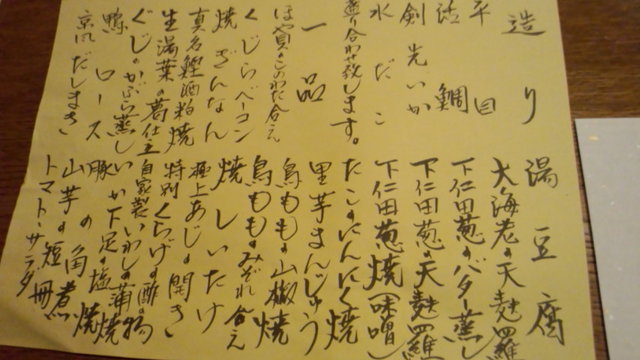 造り
平目
活鯛
剣先いか
水だこ
盛り合わせ致します。
一品
ほや貝このわた合え
くじらベーコン
焼ぎんなん
真名鰹酒粕焼
生湯葉の葛仕立
ぐじのかぶら蒸し
鴨ロース
京風だしまき
湯豆腐
大海老の天麩羅
下仁田葱のバター蒸し
下仁田葱の天麩羅
下仁田葱焼(味噌)
たこのにんにく焼
里芋まんじゅう
鳥ももの山椒焼
鳥もものみぞれ合え
焼しいたけ
極上あじの開き
特別くらげの酢の物
自家製いわしの蒲焼
いか下足の塩焼
豚の角煮
山芋の短冊
トマトサラダ